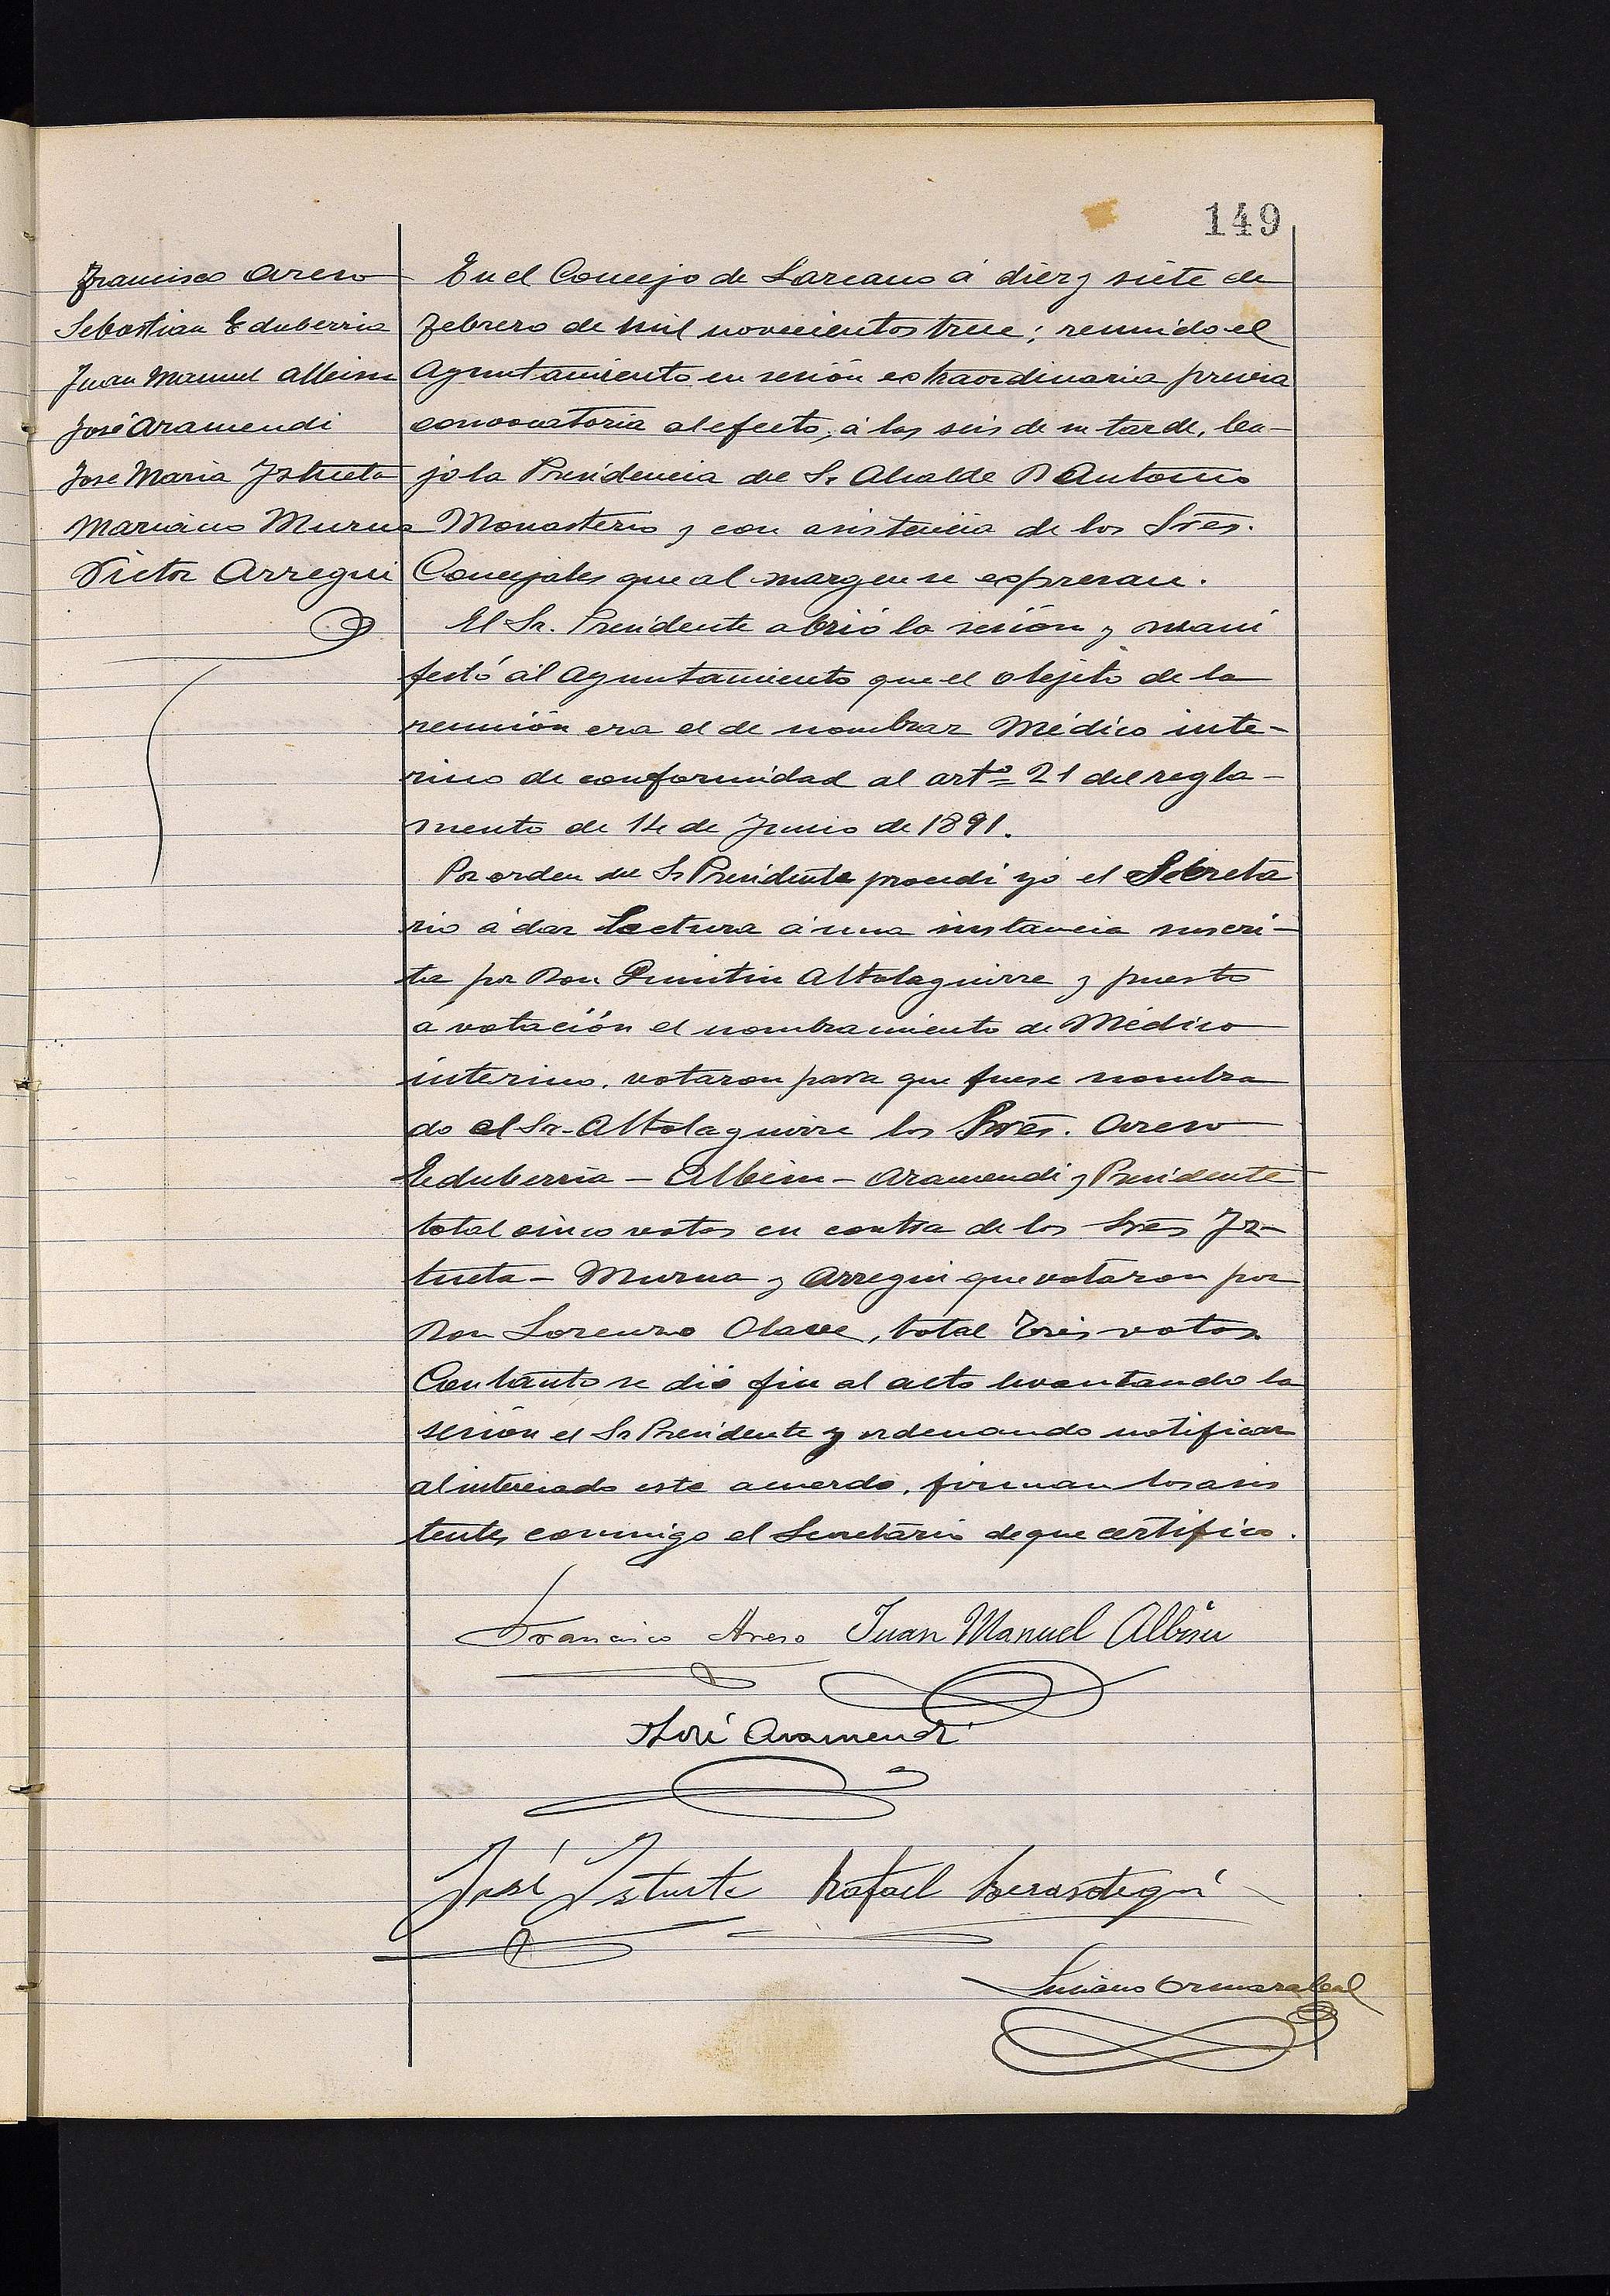 149
Francisco Areso
Sebastian Eduberria
Juan Manuel Albisu
José Aramendi
Jose Maria Iztueta
Mariano Murua
Victor Arregui
En el Concejo de Lazcano á diez y siete de
Febrero de mil novecientos trece; reunido el
Ayuntamiento en sesión extraordinaria previa
convocatoria al efecto, á las seis de su tarde, ba-
jo la Presidencia del Sr. Alcalde D Antonio
Monasterio y con asistencia de los Sres.
Concejales que al margen se expresan.
El Sr. Presidente abrió la sesión y mani
festó al Ayuntamiento que el objeto de la
reunión era el de nombrar Médico inte-
rino de conformidad al artº 21 del regla-
mento de 14 de Junio de 1891.
Por orden del Sr Presidente procedi yo el Secreta
rio á dar lectura á una instancia suscri-
ta por Don Quintin Altolaguirre y puesto
á votación el nombramiento de Médico
interino. votaron para que fuese nombra
do el Sr. Altolaguirre los Sres. Areso
Eduberria - Albisu - Aramendi y Presidente
total cinco votos en contra de los Sres Iz-
tueta - Murua y Arregui que votaron por
Don Lorenzo Olave, total tres votos.
Con tanto se dió fin al acto levantando la
sesión el Sr Presidente y ordenando notificar
al interesado este acuerdo, firman los asis
tentes conmigo el Secretario de que certifico.
Francisco Areso Juan Manuel Albisu
José Aramendi
José Iztueta Rafael Berasategui
Luciano